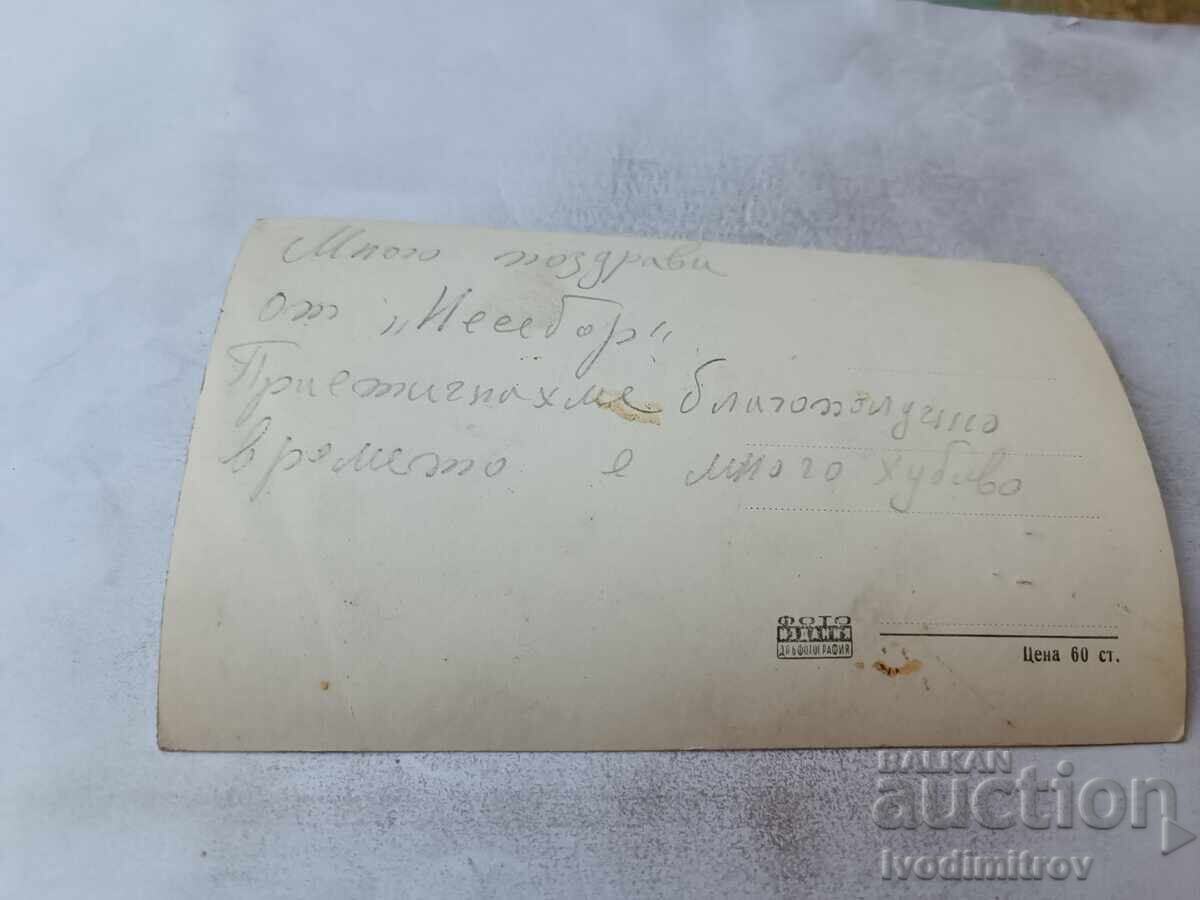 Много поздрави
от „Несебор"
Пристигнахме благополучно
времето е много хубаво
ФОТО
ИЗДАНИЯ
ДП БЪЛГ. ФОТОГРАФИЯ
Цена 60 ст.
BALKAN
auction
Ivodimitrov